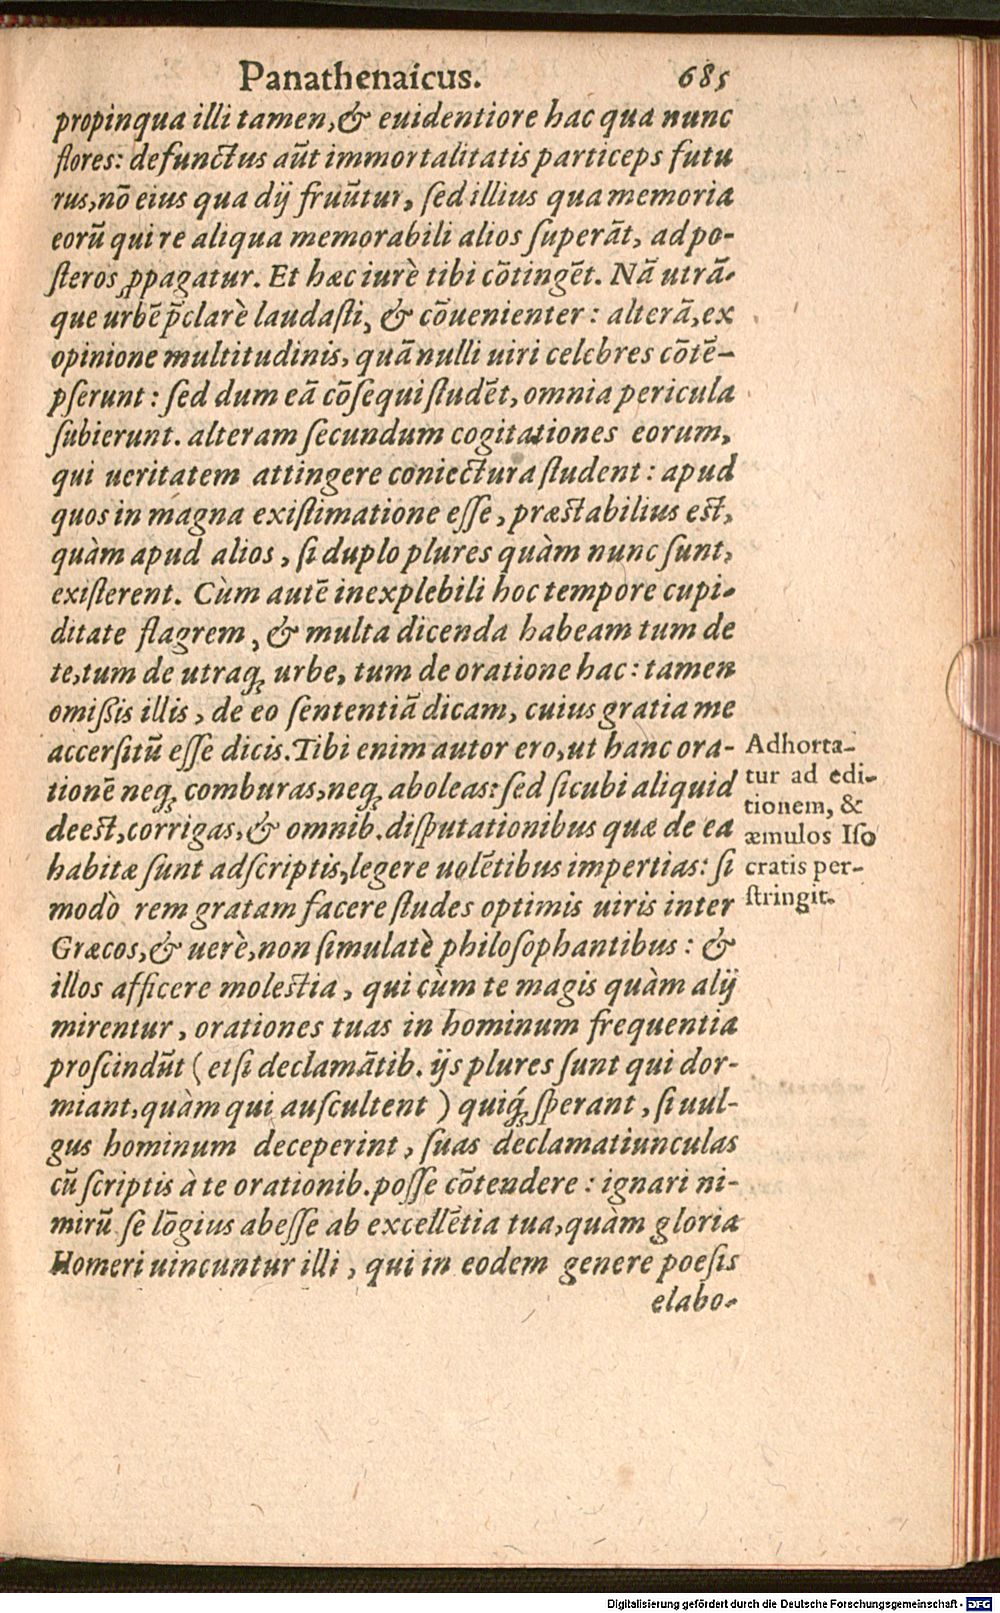 Panathenaicus. 685
propinqua illi tamen, & euidentiore hac qua nunc
flores: defunctus aũt immortalitatis particeps futu
rus, nō eius qua dij fruũtur, sed illius qua memoria
eorũ qui re aliqua memorabili alios superāt, ad po-
steros ꝓpagatur. Et hæc iurè tibi cōtingēt. Nā utrā-
que urbē p̄clarè laudasti, & cōuenienter: alterā, ex
opinione multitudinis, quā nulli uiri celebres cōtē-
pserunt: sed dum eā cōsequi studēt, omnia pericula
subierunt. alteram secundum cogitationes eorum,
qui ueritatem attingere coniectura student: apud
quos in magna existimatione esse, præstabilius est,
quàm apud alios, si duplo plures quàm nunc sunt,
existerent. Cùm autē inexplebili hoc tempore cupi-
ditate flagrem, & multa dicenda habeam tum de
te, tum de utraq; urbe, tum de oratione hac: tamen
omißis illis, de eo sententiā dicam, cuius gratia me
accersitũ esse dicis. Tibi enim autor ero, ut hanc ora-
tionē neq; comburas, neq; aboleas: sed sicubi aliquid
deest, corrigas, & omnib. disputationibus quæ de ea
habitæ sunt adscriptis, legere uolētibus impertias: si
modò rem gratam facere studes optimis uiris inter
Græcos, & uerè, non simulatè philosophantibus: &
illos afficere molestia, qui cùm te magis quàm alij
mirentur, orationes tuas in hominum frequentia
proscindũt (etsi declamātib. ijs plures sunt qui dor-
miant, quàm qui auscultent) quiq́; sperant, si uul-
gus hominum deceperint, suas declamatiunculas
cũ scriptis à te orationib. posse cōtendere: ignari ni-
mirũ se lōgius abesse ab excellētia tua, quàm gloria
Homeri uincuntur illi, qui in eodem genere poesis
elabo-
Adhorta-
tur ad edi-
tionem, &
æmulos Iso
cratis per-
stringit.
Digitalisierung gefördert durch die Deutsche Forschungsgemeinschaft - DFG